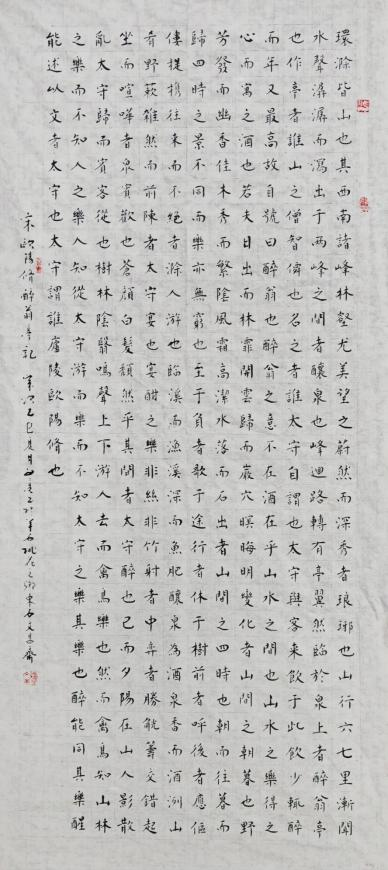 環滁皆山也其西南諸峰林壑尤美望之蔚然而深秀者瑯琊也山行六七里漸聞
水聲潺潺而瀉出于兩峰之間者釀泉也峰迴路轉有亭翼然臨於泉上者醉翁亭
也作亭者誰山之僧智僊也名之者誰太守自謂也太守與客來飲于此飲少輒醉
而年又最高故自號曰醉翁也醉翁之意不在酒在乎山水之間也山水之樂得之
心而寓之酒也若夫日出而林霏開雲歸而巖穴暝晦明變化者山間之朝暮也野
芳發而幽香佳木秀而繁陰風霜高潔水落而石出者山間之四時也朝而往暮而
歸四時之景不同而樂亦無窮也至于負者歌于途行者休于樹前者呼後者應傴
僂提攜往來而不絕者滁人游也臨溪而漁溪深而魚肥釀泉為酒泉香而酒洌山
肴野蔌雜然而前陳者太守宴也宴酣之樂非絲非竹射者中弈者勝觥籌交錯起
坐而喧嘩者衆賓歡也蒼顏白髮頹然乎其間者太守醉也已而夕陽在山人影散
亂太守歸而賓客從也樹林陰翳鳴聲上下游人去而禽鳥樂也然而禽鳥知山林
之樂而不知人之樂人知從太守游而樂而不知太守之樂其樂也醉能同其樂醒
能述以文者太守也太守謂誰廬陵歐陽修也
宋歐陽修醉翁亭記 乙巳夏月 桃花之鄉東 文昌齋